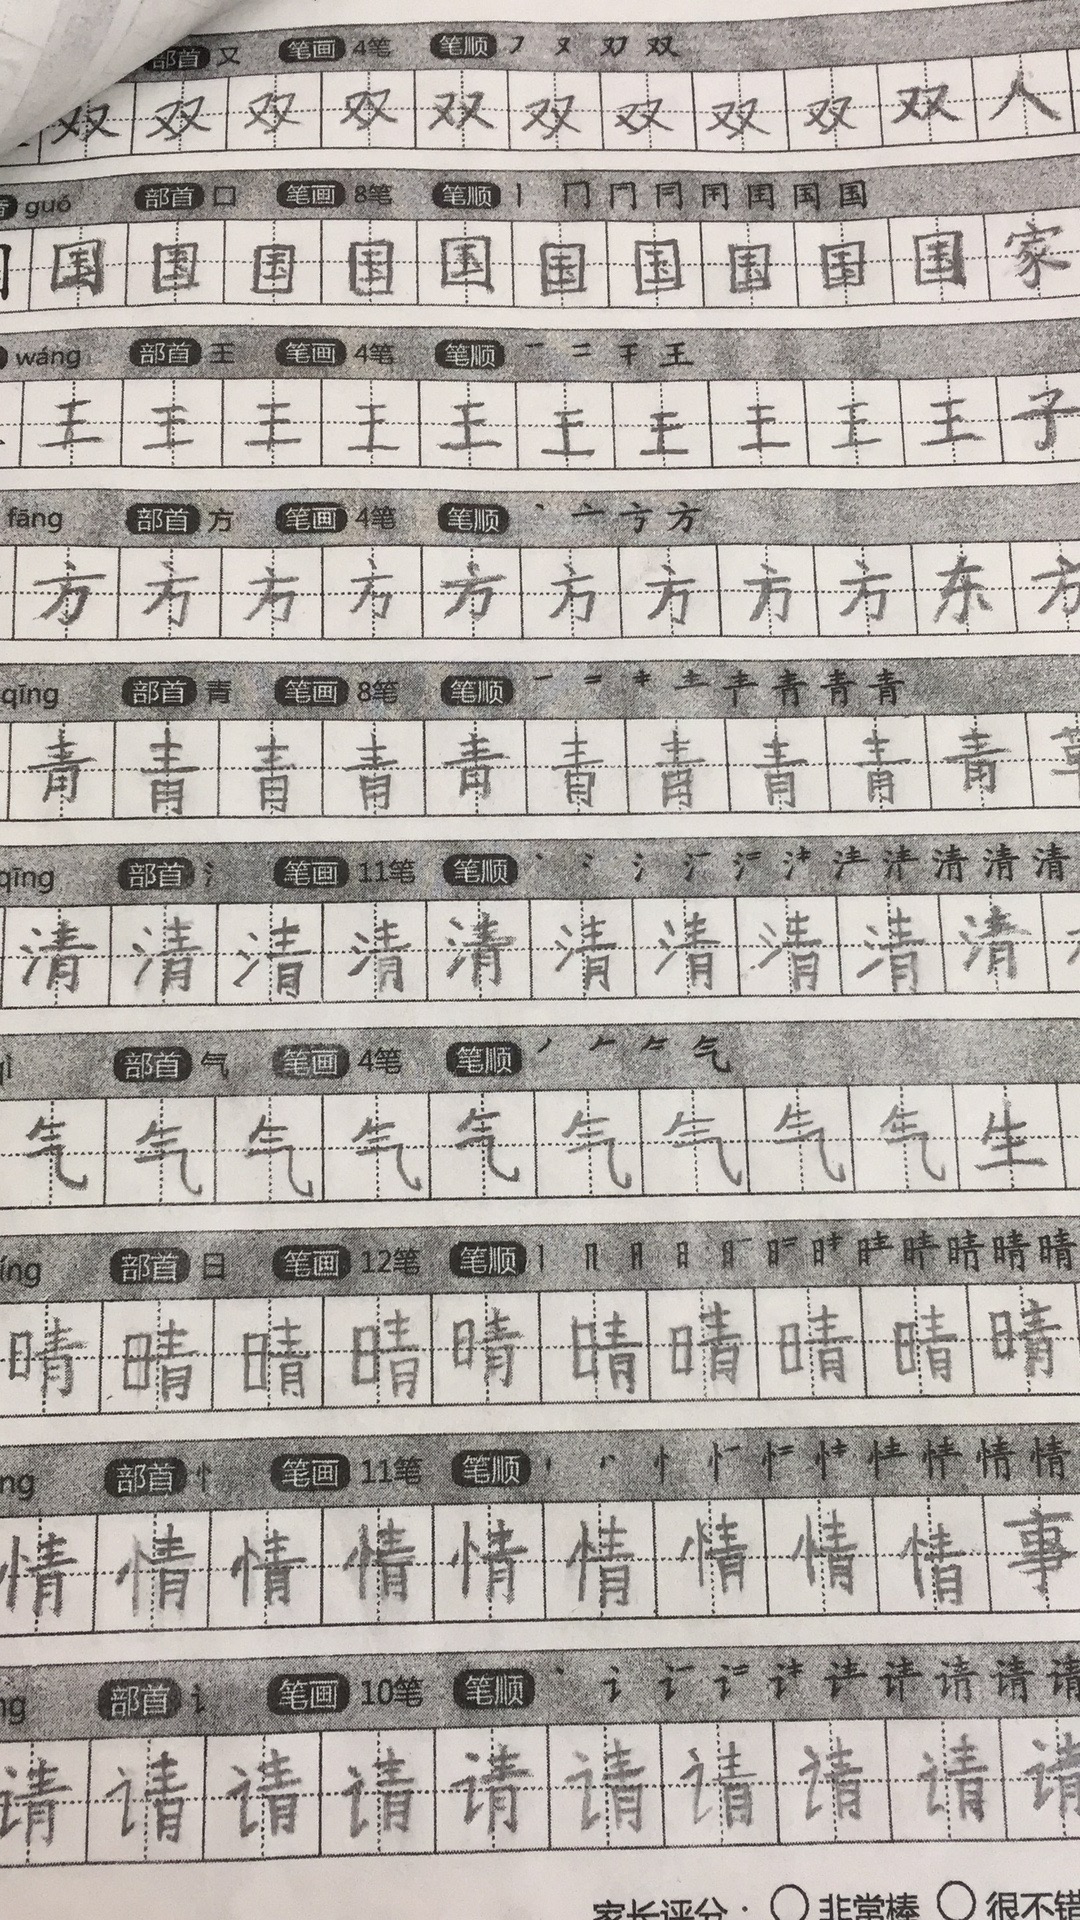 部首 又 笔画 4笔 笔顺 ㇇ 又 双 双
双 双 双 双 双 双 双 双 双 双 人
guó 部首 口 笔画 8笔 笔顺 丨 冂 冂 国
国 国 国 国 国 国 国 国 国 国 家
wáng 部首 王 笔画 4笔 笔顺 一 二 干 王
王 王 王 王 王 王 王 王 王 王 子
fāng 部首 方 笔画 4笔 笔顺 丶 亠 方 方
方 方 方 方 方 方 方 方 方 东 方
qīng 部首 青 笔画 8笔 笔顺 一 二 キ 龶 青 青 青
青 青 青 青 青 青 青 青 青 青
qīng 部首 氵 笔画 11笔 笔顺 丶 冫 氵 清 清 清
清 清 清 清 清 清 清 清 清 清
部首 气 笔画 4笔 笔顺 丿 𠂉 气
气 气 气 气 气 气 气 气 气 生
部首 日 笔画 12笔 笔顺 丨 冂 日 日 晴 晴 晴
晴 晴 晴 晴 晴 晴 晴 晴 晴 晴
部首 忄 笔画 11笔 笔顺 忄 情 情
情 情 情 情 情 情 情 情 情 事
部首 讠 笔画 10笔 笔顺 丶 讠 请 请 请
请 请 请 请 请 请 请 请 请 请
家长评分： 非常棒 很不错